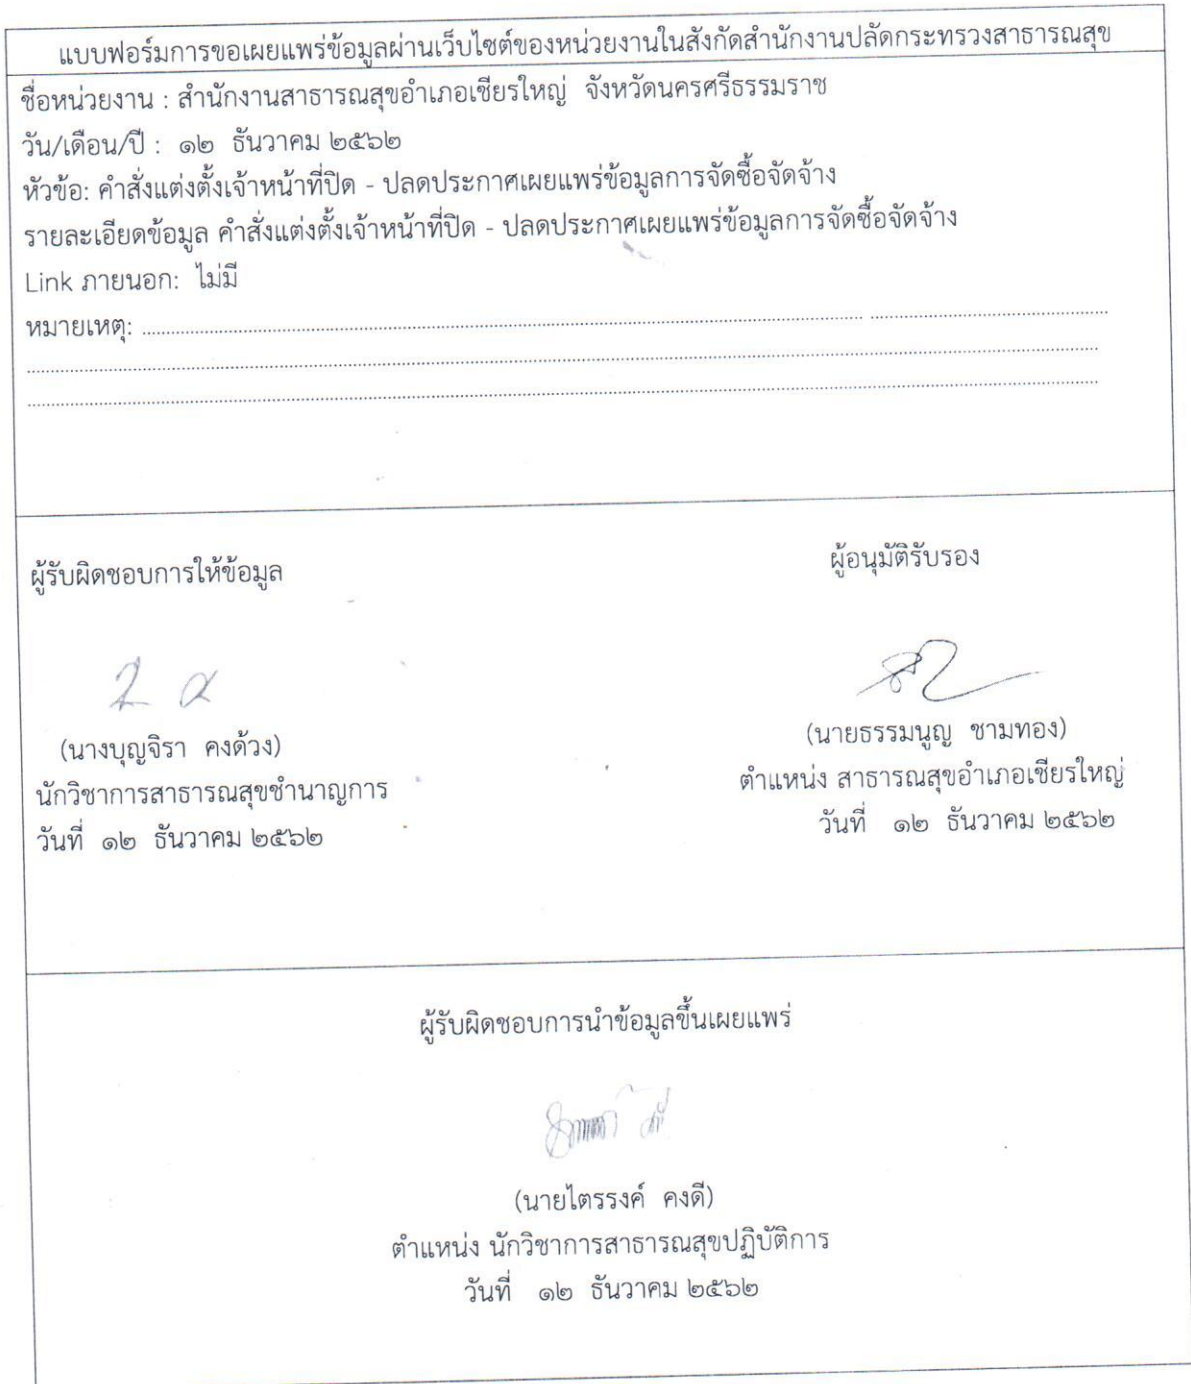 แบบฟอร์มการขอเผยแพร่ข้อมูลผ่านเว็บไซต์ของหน่วยงานในสังกัดสำนักงานปลัดกระทรวงสาธารณสุข
ชื่อหน่วยงาน : สำนักงานสาธารณสุขอำเภอเชียรใหญ่ จังหวัดนครศรีธรรมราช
วัน/เดือน/ปี : ๑๒ ธันวาคม ๒๕๖๒
หัวข้อ: คำสั่งแต่งตั้งเจ้าหน้าที่ปิด - ปลดประกาศเผยแพร่ข้อมูลการจัดซื้อจัดจ้าง
รายละเอียดข้อมูล คำสั่งแต่งตั้งเจ้าหน้าที่ปิด - ปลดประกาศเผยแพร่ข้อมูลการจัดซื้อจัดจ้าง
Link ภายนอก: ไม่มี
หมายเหตุ: ........................................................................
........................................................................
........................................................................
ผู้รับผิดชอบการให้ข้อมูล
(นางบุญจิรา คงด้วง)
นักวิชาการสาธารณสุขชำนาญการ
วันที่ ๑๒ ธันวาคม ๒๕๖๒
ผู้อนุมัติรับรอง
(นายธรรมนูญ ชามทอง)
ตำแหน่ง สาธารณสุขอำเภอเชียรใหญ่
วันที่ ๑๒ ธันวาคม ๒๕๖๒
ผู้รับผิดชอบการนำข้อมูลขึ้นเผยแพร่
(นายไตรรงค์ คงดี)
ตำแหน่ง นักวิชาการสาธารณสุขปฏิบัติการ
วันที่ ๑๒ ธันวาคม ๒๕๖๒